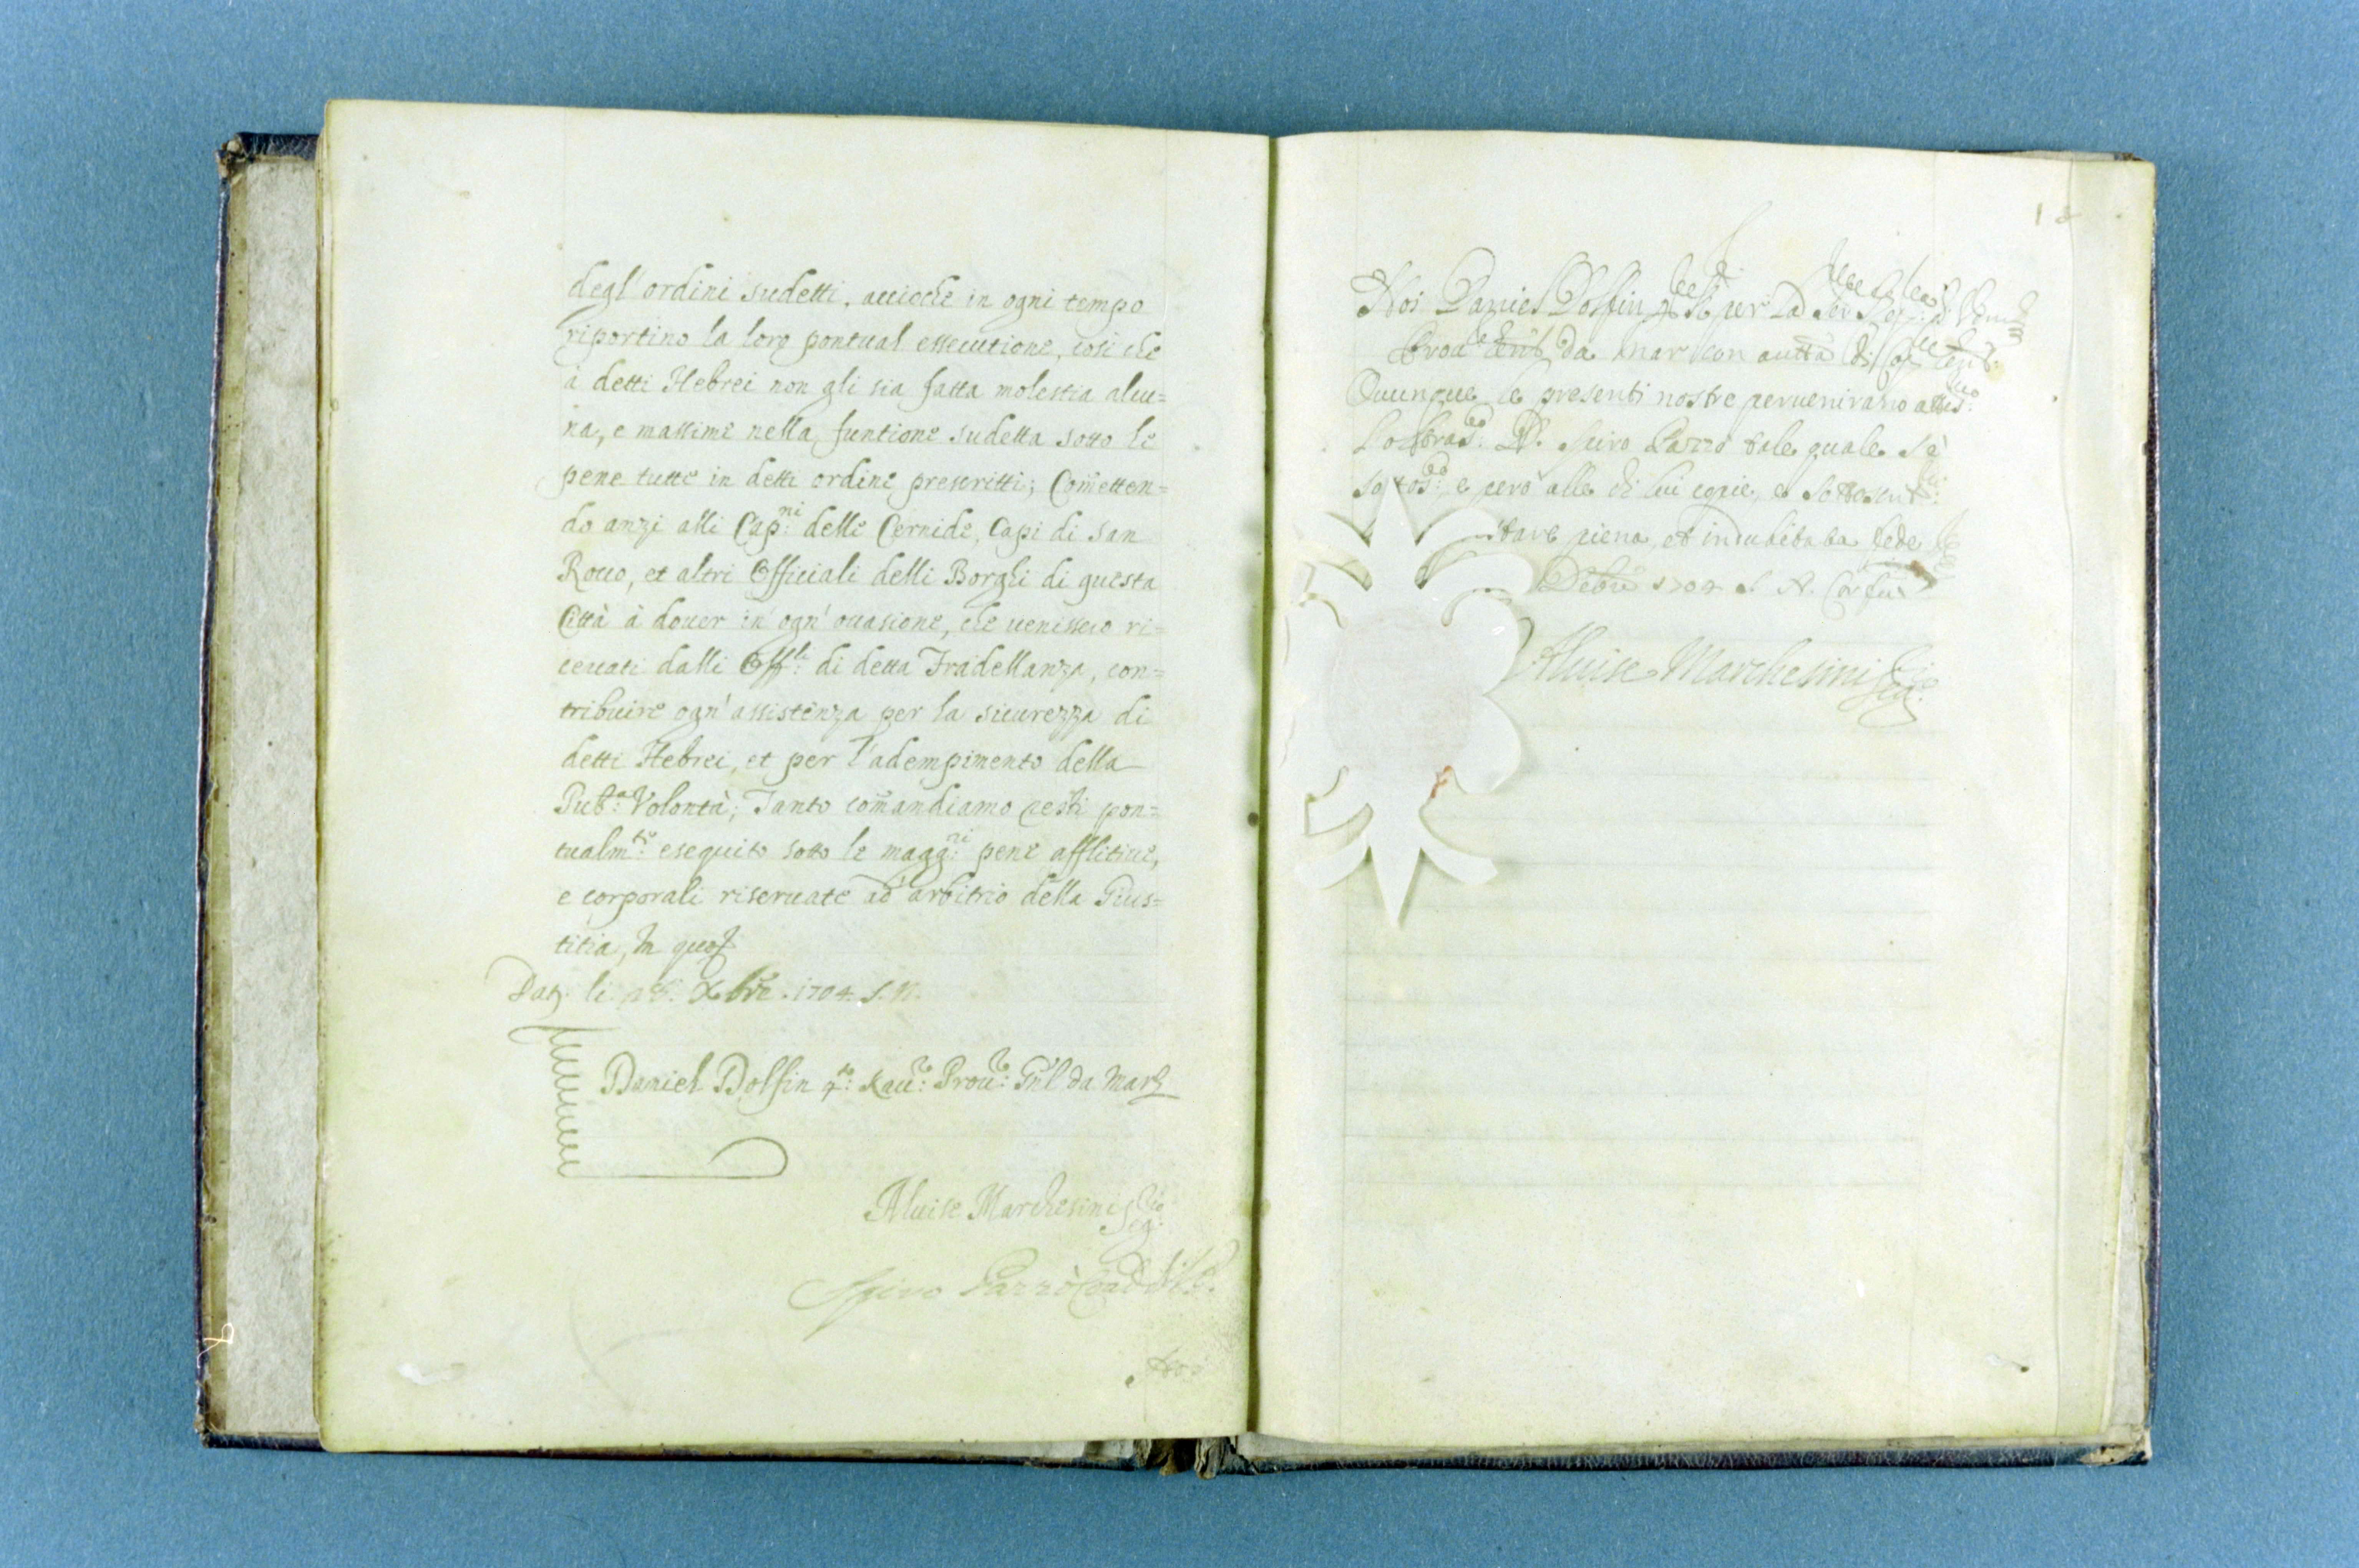 degl'ordini sudetti, acciochè in ogni tempo
riportino la loro pontual essecutione, così che
à detti Hebrei non gli sia fatta molestia alcu=
na, e massime nella funtione sudetta sotto le
pene tutte in detti ordini prescritti; Com̃etten=
do anzi alli Cap:ni delle Cernide, Capi di San
Rocco, et altri Officiali delli Borghi di questa
Città à douer in ogn'occasione, che uenissero ri=
cercati dalli Off:li di detta Fradellanza, con=
tribuire ogn'assistenza per la sicurezza di
detti Hebrei, et per l'adempimento della
Pub:a Volontà; Tanto com̃andiamo resti pon=
tualm:te esequito sotto le magg:ri pene afflitiue,
e corporali riseruate ad arbitrio della Gius=
titia, In quo
Dat. li Xbre. 1704. S.N.
Daniel Dolfin 4:to Kau:r Prou:r Gñl da Mar
Aluise Marchesini Seg:rio
Spiro Pazzo
Noi
18
Noi Daniel Dolfin 4:to per la
da Mar con auttà di
Ouunque le presenti nostre peruenirano attes:mo
Spiro Pazzo tale quale sè
e però alle di lui copie, e
dare piena, et indubitata fede
1704 S.N. Corfù
Aluise Marchesini Seg:rio